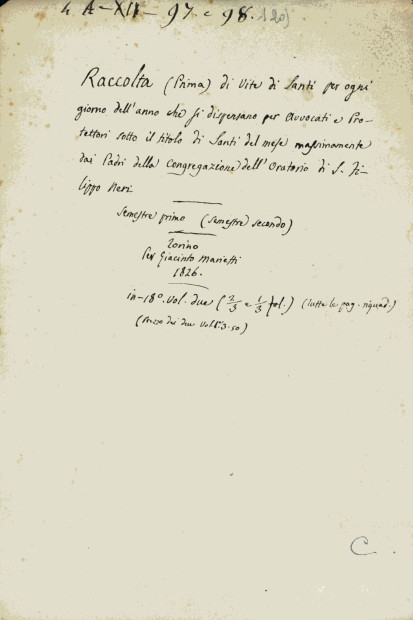 4. A-XII- 97 e 98. 120)
Raccolta (Prima) di Vite di Santi per ogni
giorno dell'anno che si dispensano per Avvocati e Pro-
tettori sotto il titolo di Santi del mese massimamente
dai Padri della Congregazione dell'Oratorio di S. Fi-
lippo Neri
Semestre primo (Semestre secondo)
Torino
Per Giacinto Marietti
1826.
in-18º. Vol. due (2/3 e 1/3 fol.) (tutte le pag. riquad.)
(Prezzo dei due Voll. 3.50)
C.